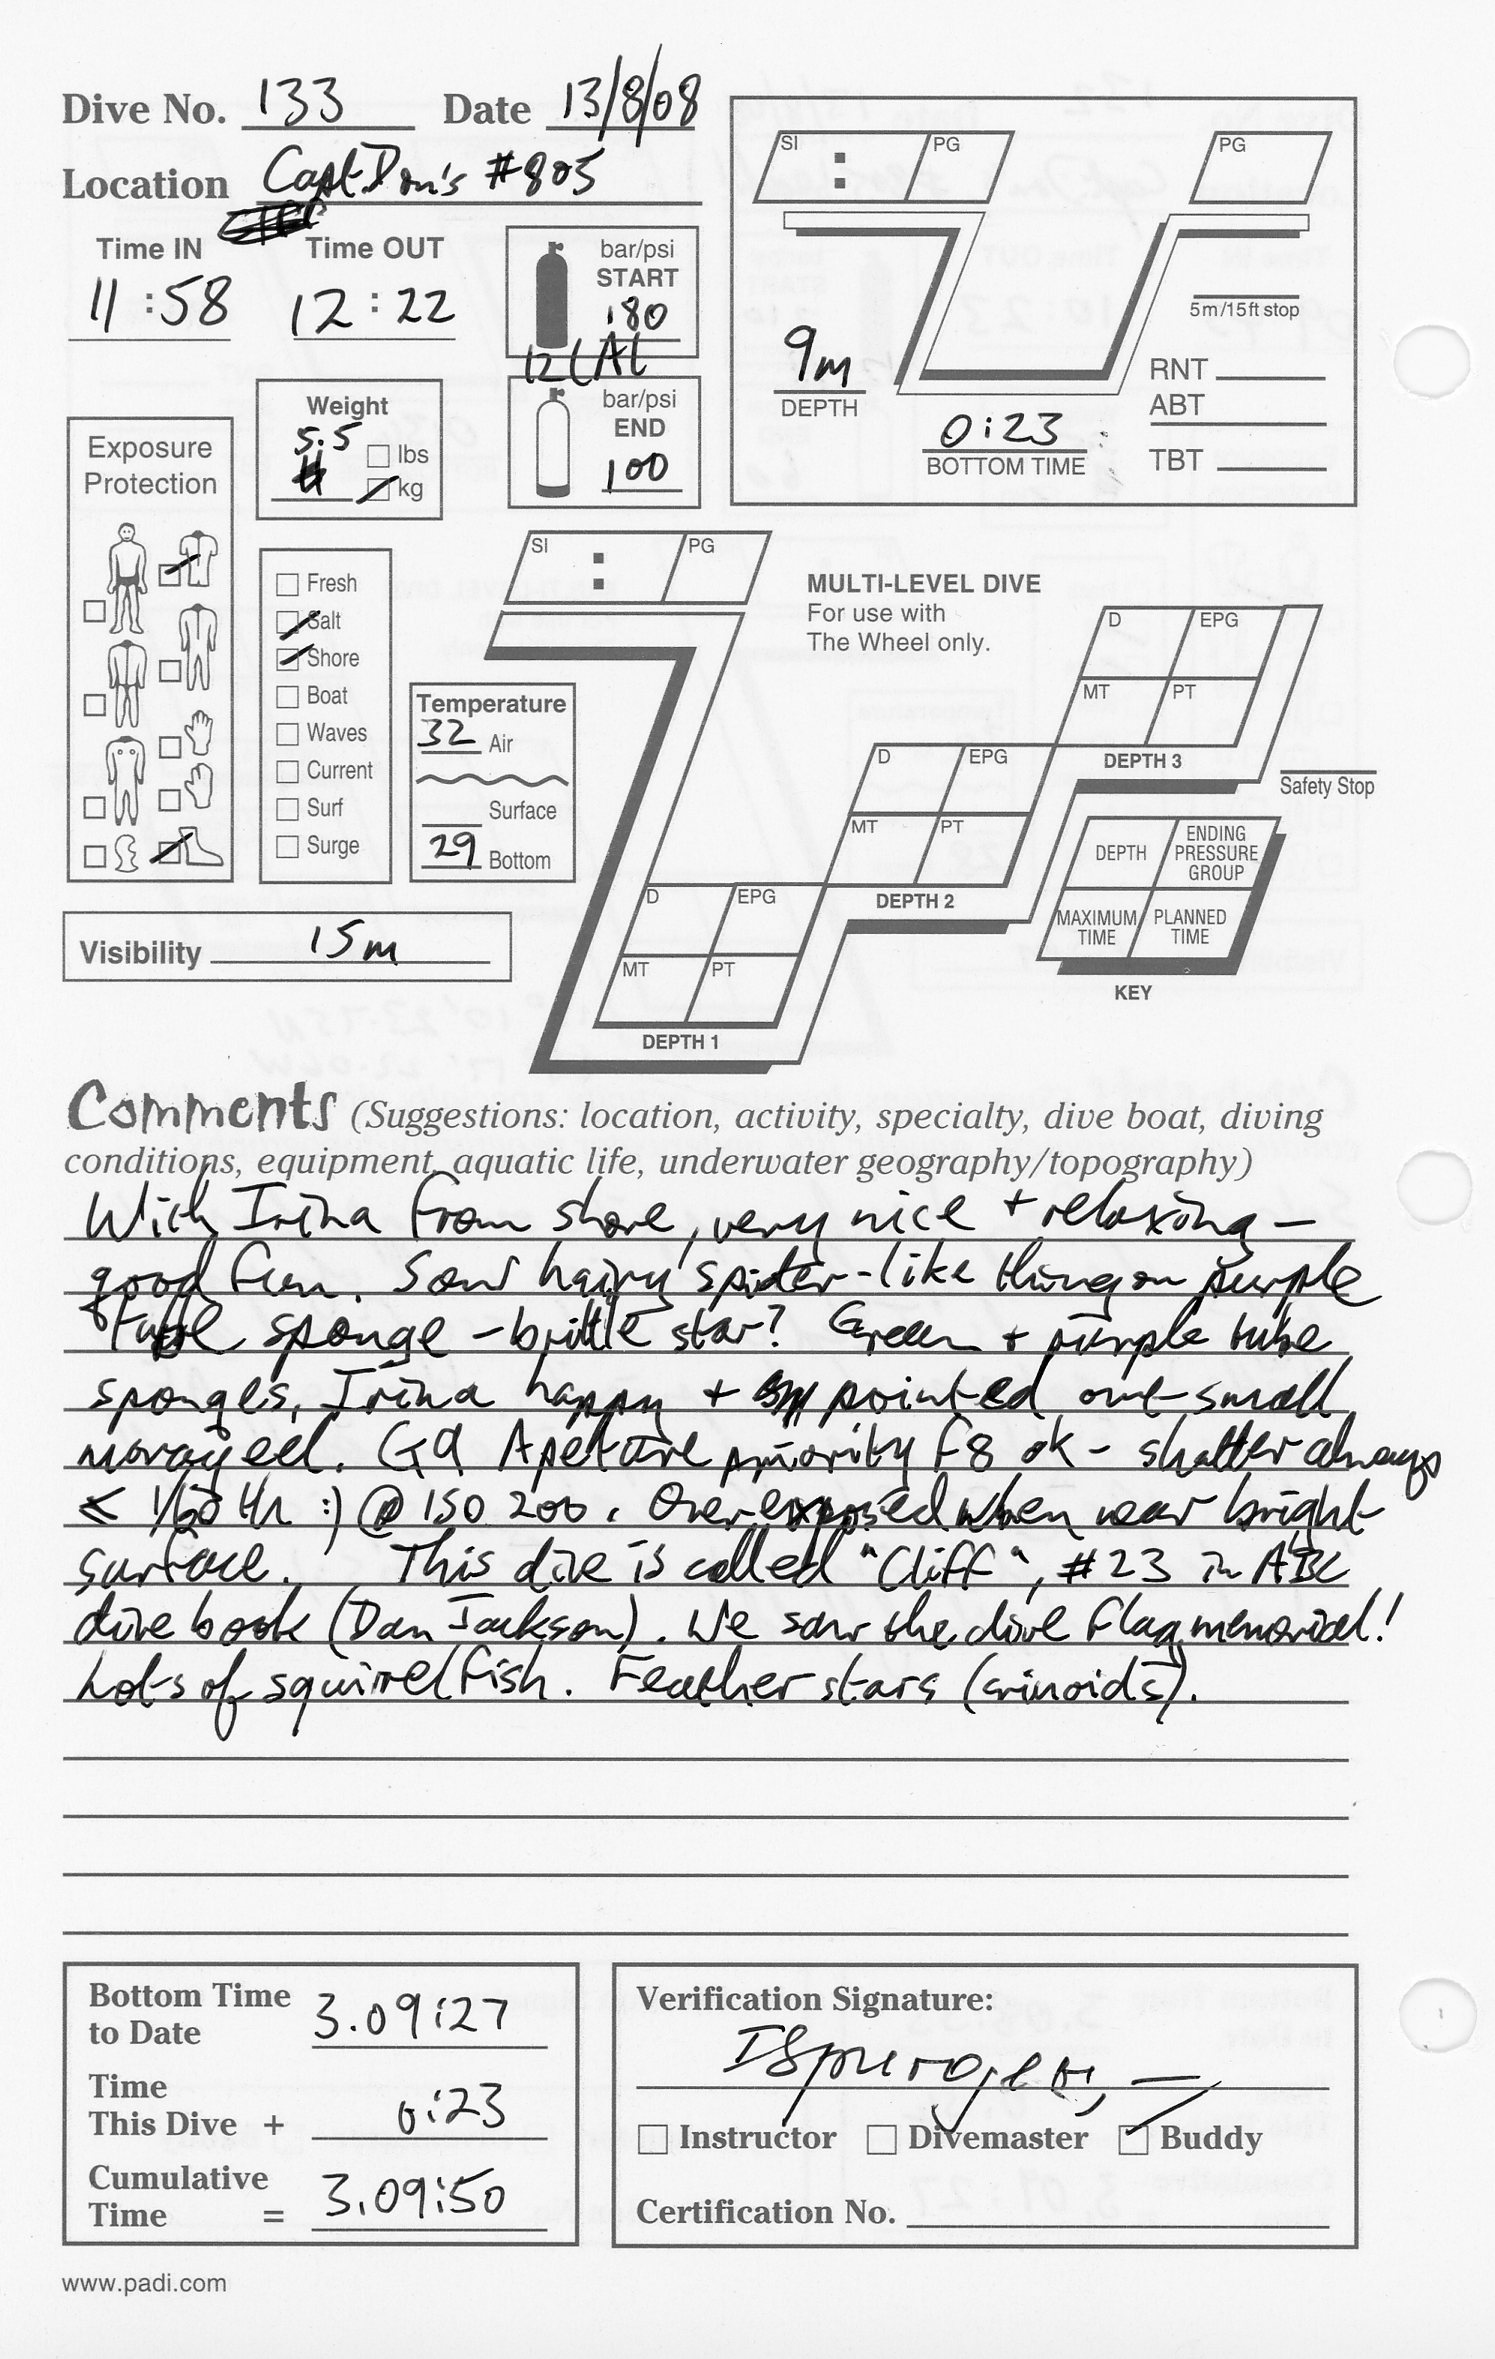 Dive No. 133 Date 13/8/08
Location Capt. Don's #805
Time IN Time OUT
11:58 12:22
bar/psi
START
180
12L AL
bar/psi
END
100
Weight
5.5
lbs
kg
Exposure
Protection
Fresh
Salt
Shore
Boat
Waves
Current
Surf
Surge
Temperature
32 Air
Surface
29 Bottom
Visibility 15m
SI : PG
PG
5m/15ft stop
9m
DEPTH
0:23
BOTTOM TIME
RNT
ABT
TBT
SI : PG
MULTI-LEVEL DIVE
For use with
The Wheel only.
D EPG
MT PT
DEPTH 3
D EPG
MT PT
DEPTH 2
D EPG
MT PT
DEPTH 1
Safety Stop
DEPTH
ENDING
PRESSURE
GROUP
MAXIMUM
TIME
PLANNED
TIME
KEY
Comments (Suggestions: location, activity, specialty, dive boat, diving
conditions, equipment, aquatic life, underwater geography/topography)
With Irina from shore, very nice + relaxing –
good fun. Saw hairy spider-like thing on purple
tube sponge – brittle star? Green + purple tube
sponges, Irina happy + pointed out small
moray eel. G9 Apeture priority F8 ok – shutter always
≤ 1/60 :) @ ISO 200. Overexposed when near bright
surface. This dive is called "Cliff", #23 in ABC
dive book (Dan Jackson). We saw the dive flag memorial!
Lots of squirrelfish. Feather stars (crinoids).
Bottom Time
to Date 3.09:27
Time
This Dive + 0:23
Cumulative
Time = 3.09:50
Verification Signature:
Instructor Divemaster Buddy
Certification No.
www.padi.com